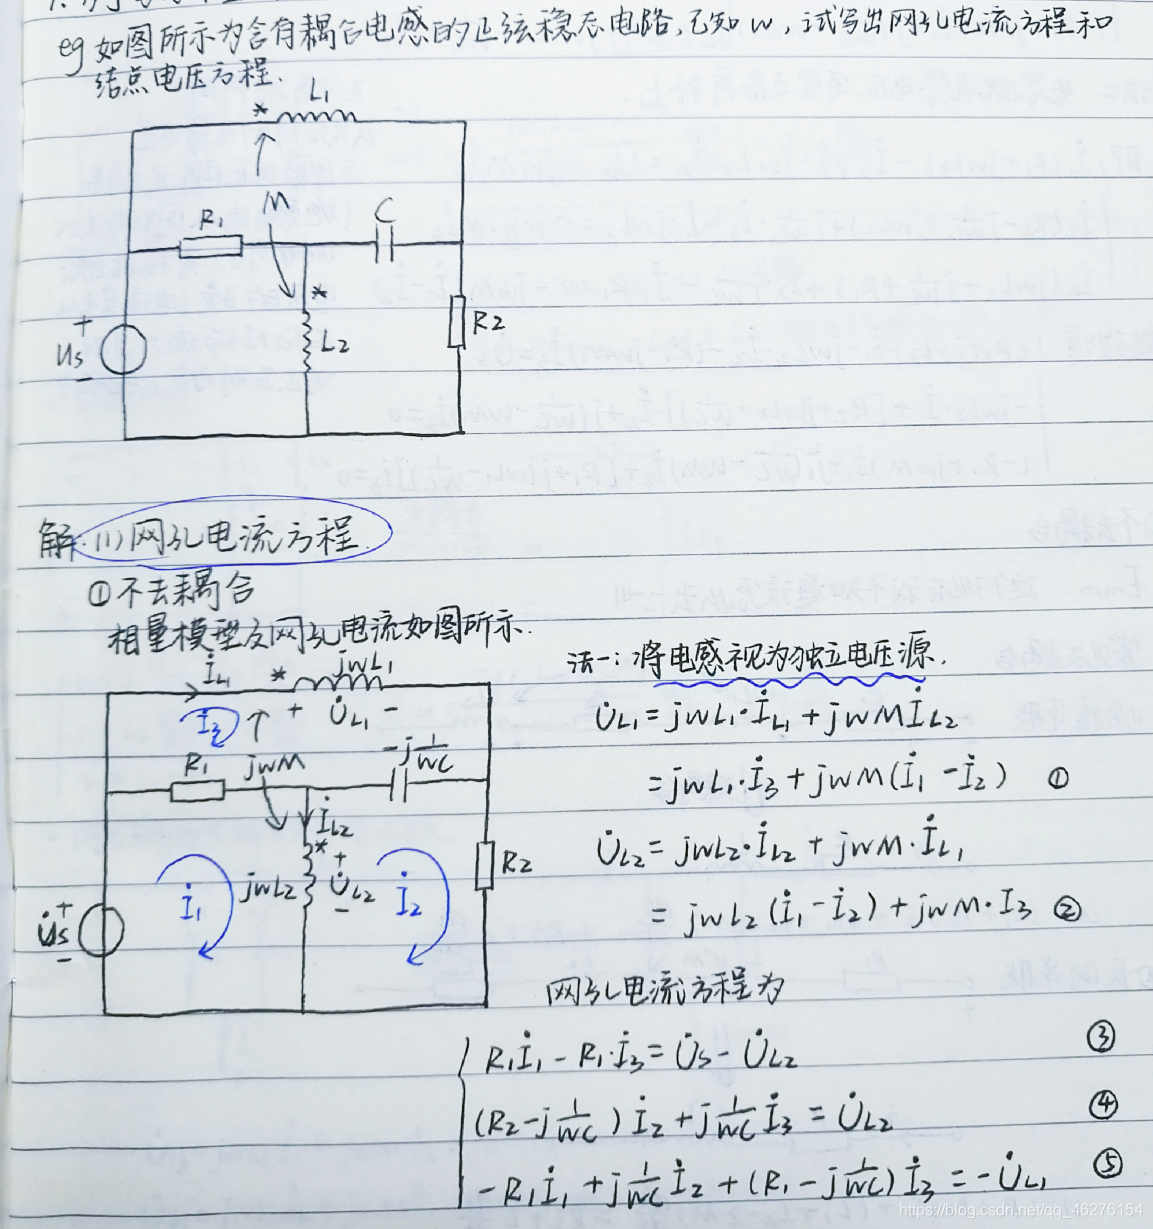 eg 如图所示为含有耦合电感的正弦稳态电路,已知w,试写出网孔电流方程和
结点电压方程.
L₁
*
M
R₁
C
*
+
Us
-
L₂
R₂
解:(1)网孔电流方程.
①不去耦合
相量模型及网孔电流如图所示.
法一:将电感视为独立电压源.
İL₁ * jwL₁
+ U̇L₁ -
İ₃
R₁ jwM -j1/wC
İL₂
*
+
jwL₂ U̇L₂
-
R₂
İ₁ İ₂
+
U̇s
-
U̇L₁ = jwL₁·İL₁ + jwMİL₂
= jwL₁·İ₃ + jwM(İ₁ - İ₂) ①
U̇L₂ = jwL₂·İL₂ + jwM·İL₁
= jwL₂(İ₁ - İ₂) + jwM·I₃ ②
网孔电流方程为
R₁İ₁ - R₁·İ₃ = U̇s - U̇L₂ ③
(R₂ - j1/wC)İ₂ + j1/wC İ₃ = U̇L₂ ④
-R₁İ₁ + j1/wC İ₂ + (R₁ - j1/wC)İ₃ = -U̇L₁ ⑤
https://blog.csdn.net/qq_46276154